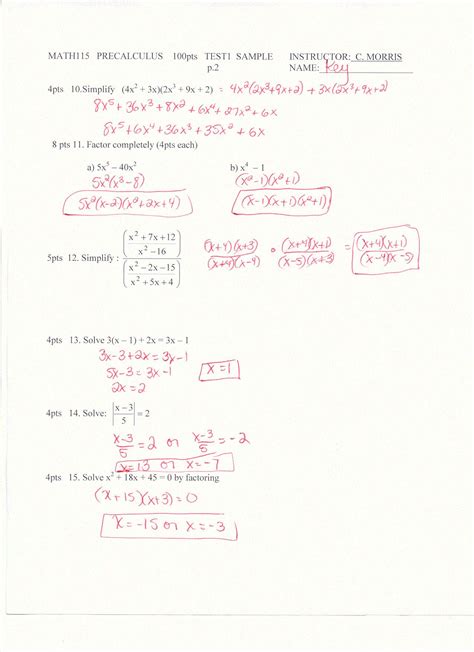 MATH115 PRECALCULUS 100pts TEST1 SAMPLE INSTRUCTOR: C. MORRIS
p.2 NAME: Key
4pts 10.Simplify (4x² + 3x)(2x³ + 9x + 2) = 4x²(2x³+9x+2) + 3x(2x³+9x+2)
8x⁵ + 36x³ + 8x² + 6x⁴ + 27x² + 6x
8x⁵ + 6x⁴ + 36x³ + 35x² + 6x
8 pts 11. Factor completely (4pts each)
a) 5x⁵ – 40x² b) x⁴ – 1
5x²(x³-8) (x²-1)(x²+1)
5x²(x-2)(x²+2x+4) (x-1)(x+1)(x²+1)
5pts 12. Simplify : ((x² + 7x + 12)/(x² – 16))/((x² – 2x – 15)/(x² + 5x + 4)) (x+4)(x+3)/(x+4)(x-4) • (x+4)(x+1)/(x-5)(x+3) = (x+4)(x+1)/(x-4)(x-5)
4pts 13. Solve 3(x – 1) + 2x = 3x – 1
3x-3+2x = 3x-1
5x-3 = 3x-1 x=1
2x = 2
4pts 14. Solve: |(x – 3)/5| = 2
(x-3)/5 = 2 or (x-3)/5 = -2
x=13 or x=-7
4pts 15. Solve x² + 18x + 45 = 0 by factoring
(x+15)(x+3)=0
x=-15 or x=-3